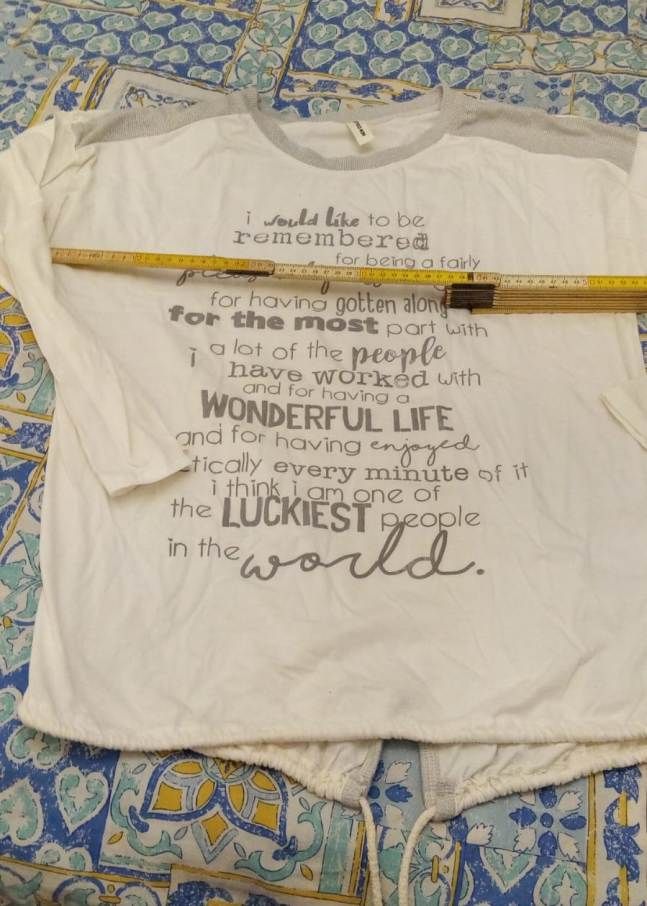 i would like to be
remembered
for being a fairly
for having gotten along
for the most part with
i a lot of the people
have worked with
and for having a
WONDERFUL LIFE
and for having enjoyed
tically every minute of it
i think i am one of
the LUCKIEST people
in the world.